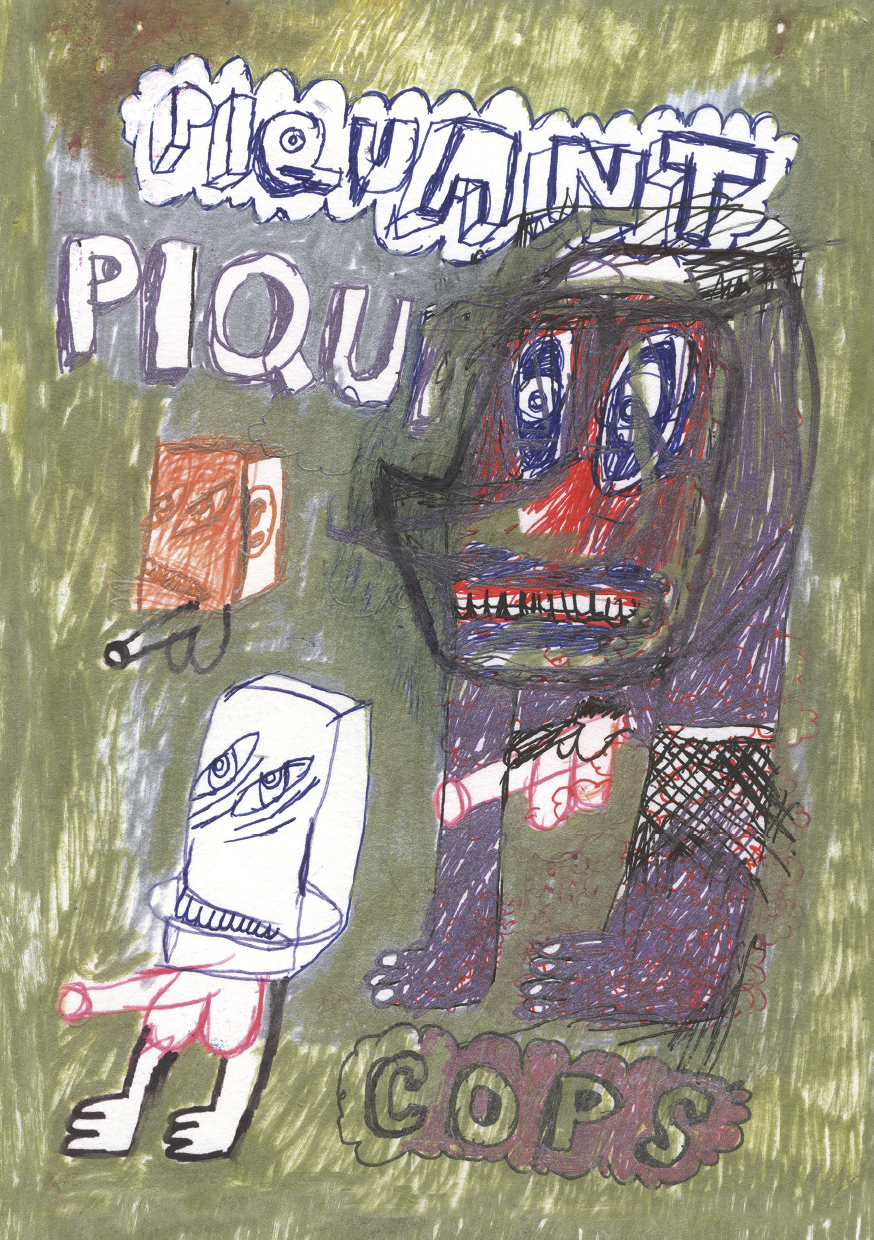 PIQUANT
PIQU
COPS